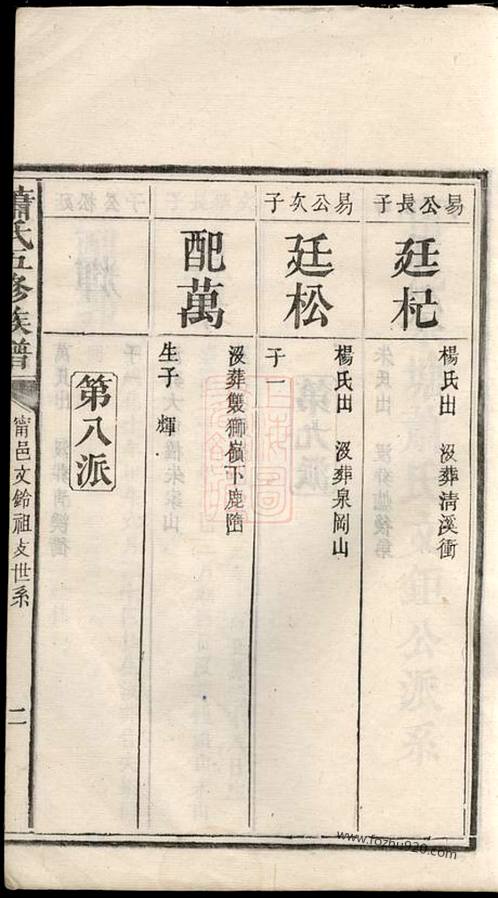 易公長子
廷杞
楊氏出 沒葬清溪衝
易公次子
廷松
楊氏出 沒葬泉岡山
子一
配萬
沒葬雙獅嶺下鹿
生子 輝
第八派
蕭氏五修族譜
甯邑文鈴祖支世系
二
www.fozhu920.com